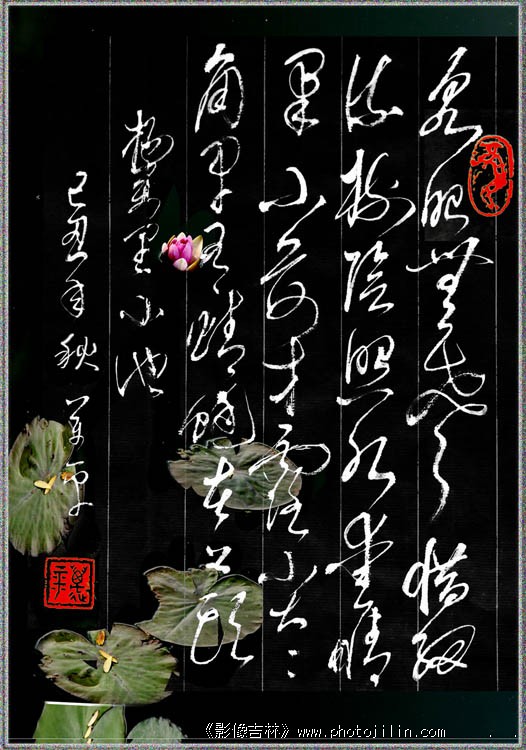 泉眼無聲惜細
流樹陰照水愛晴
柔小荷才露尖々
角早有蜻蜓立上頭
楊萬里小池
己丑年秋
《影像吉林》www.photojilin.com